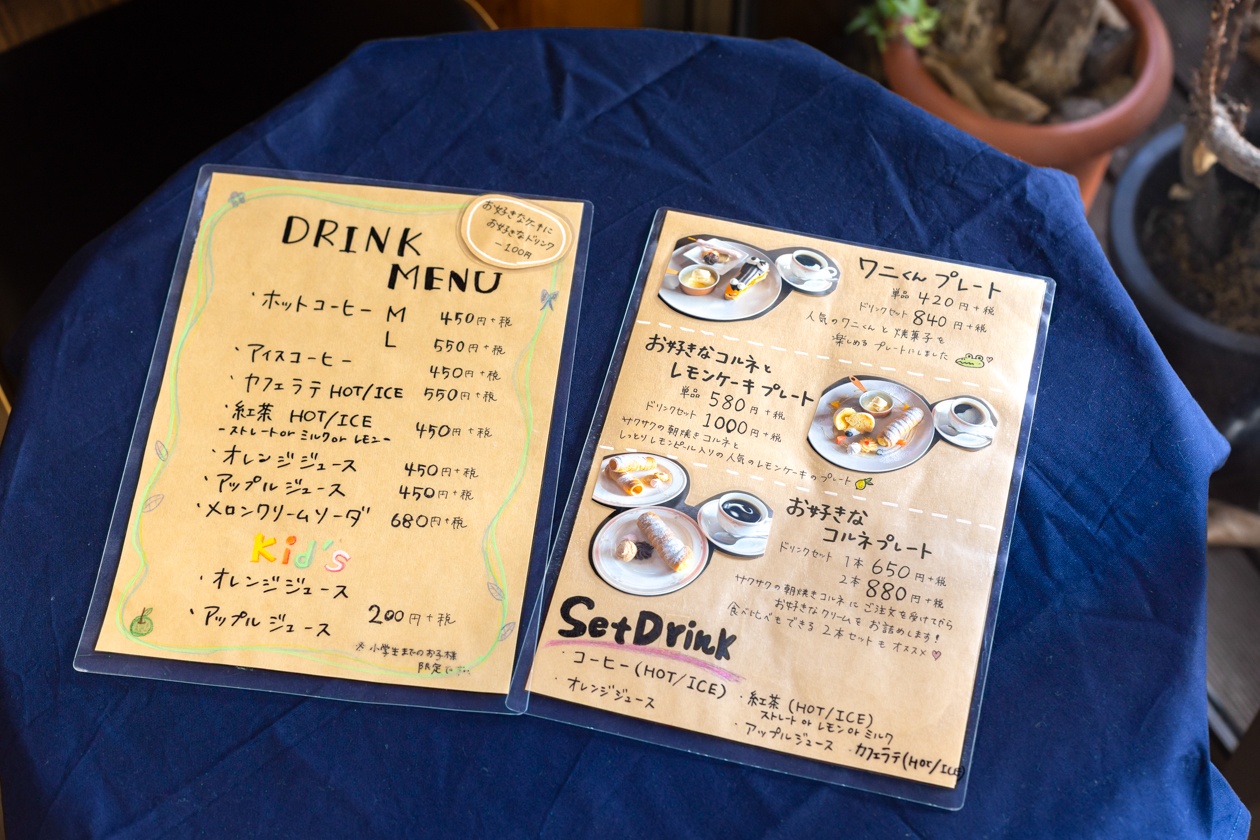 お好きなケーキに
お好きなドリンク
-100円
DRINK
MENU
・ホットコーヒー M 450円+税
L 550円+税
・アイスコーヒー 450円+税
・カフェラテ HOT/ICE 550円+税
・紅茶 HOT/ICE 450円+税
-ストレート or ミルク or レモン-
・オレンジジュース 450円+税
・アップルジュース 450円+税
・メロンクリームソーダ 680円+税
Kid's
・オレンジジュース
・アップルジュース 200円+税
※小学生までのお子様
限定です。
ワニくんプレート
単品 420円+税
ドリンクセット 840円+税
人気のワニくんと焼菓子を
楽しめるプレートにしました
お好きなコルネと
レモンケーキプレート
単品 580円+税
ドリンクセット 1000円+税
サクサクの朝焼きコルネと
しっとりレモンピール入りの人気のレモンケーキのプレート
お好きな
コルネプレート
ドリンクセット 1本 650円+税
2本 880円+税
サクサクの朝焼きコルネにご注文を受けてから
お好きなクリームをお詰めします!
食べ比べもできる2本セットもオススメ♡
SetDrink
・コーヒー(HOT/ICE)
・オレンジジュース
・紅茶(HOT/ICE)
ストレート or レモン or ミルク
・アップルジュース ・カフェラテ(HOT/ICE)